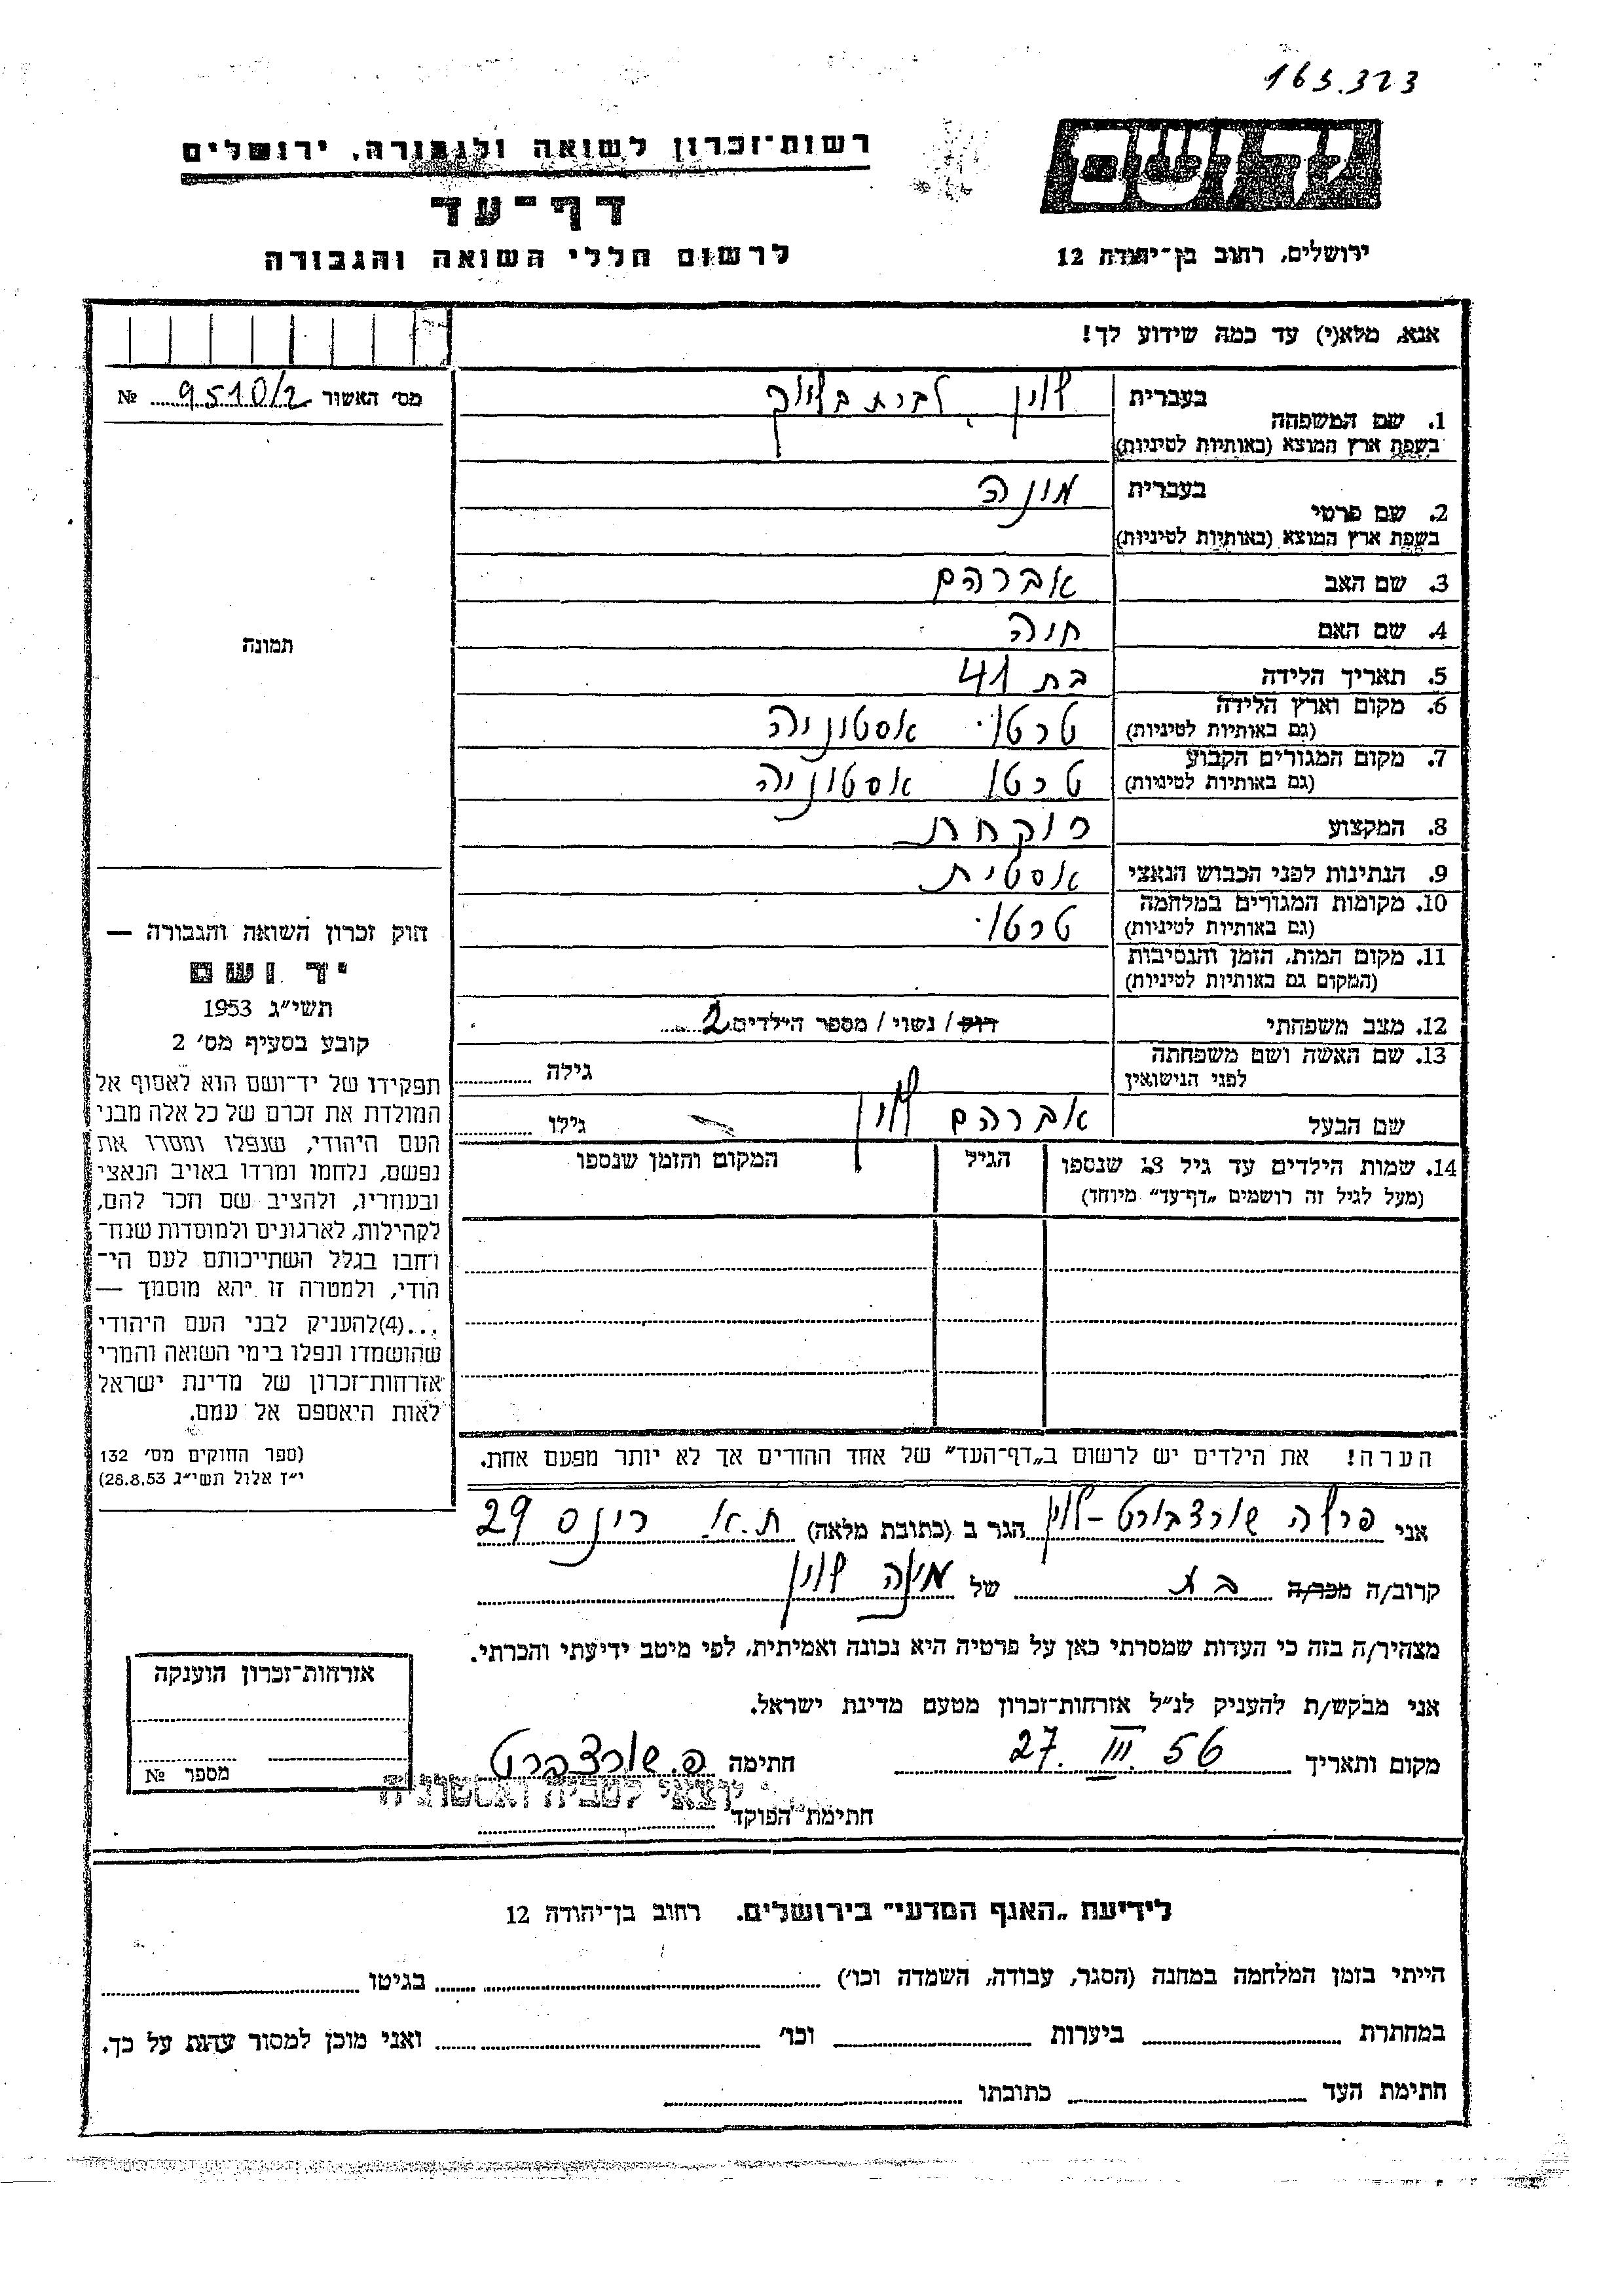 163.323
רשות־זכרון לשואה ולגבורה, ירושלים
דף־עד
לרשום חללי השואה והגבורה
יד ושם
ירושלים, רחוב בן־יהודה 12
אנא, מלא(י) עד כמה שידוע לך!
מס׳ האשור 9510/2 №
תמונה
1. שם המשפחה
בעברית לוין לבית
בשפת ארץ המוצא (באותיות לטיניות)
2. שם פרטי
בעברית מונה
בשפת ארץ המוצא (באותיות לטיניות)
3. שם האב אברהם
4. שם האם חנה
5. תאריך הלידה בת 41
6. מקום וארץ הלידה טרטו אסטוניה
(גם באותיות לטיניות)
7. מקום המגורים הקבוע טרטו אסטוניה
(גם באותיות לטיניות)
8. המקצוע רוקחת
9. הנתינות לפני הכבוש הנאצי אסטית
10. מקומות המגורים במלחמה טרטו
(גם באותיות לטיניות)
11. מקום המות, הזמן והנסיבות
(המקום גם באותיות לטיניות)
12. מצב משפחתי רוק / נשוי / מספר הילדים 2
13. שם האשה ושם משפחתה
לפני הנישואין
גילה
שם הבעל אברהם לוין גילו
14. שמות הילדים עד גיל 18 שנספו
(מעל לגיל זה רושמים „דף־עד״ מיוחד)
הגיל
המקום והזמן שנספו
חוק זכרון השואה והגבורה —
יד ושם
תשי״ג 1953
קובע בסעיף מס׳ 2
תפקידו של יד־ושם הוא לאסוף אל
המולדת את זכרם של כל אלה מבני
העם היהודי, שנפלו ומסרו את
נפשם, נלחמו ומרדו באויב הנאצי
ובעוזריו, ולהציב שם וזכר להם,
לקהילות, לארגונים ולמוסדות שנח־
רבו בגלל השתייכותם לעם הי־
הודי, ולמטרה זו יהא מוסמך —
...(4)להעניק לבני העם היהודי
שהושמדו ונפלו בימי השואה והמרי
אזרחות־זכרון של מדינת ישראל
לאות היאספם אל עמם.
(ספר החוקים מס׳ 132
י״ז אלול תשי״ג 28.8.53)
הערה! את הילדים יש לרשום ב„דף־העד״ של אחד ההורים אך לא יותר מפעם אחת.
אני פרלה שורצבורט-לוין הגר ב (כתובת מלאה) ת.א. ריינס 29
קרוב/ה מכר/ה בת של מונה לוין
מצהיר/ה בזה כי העדות שמסרתי כאן על פרטיה היא נכונה ואמיתית, לפי מיטב ידיעתי והכרתי.
אני מבקש/ת להעניק לנ״ל אזרחות־זכרון מטעם מדינת ישראל.
מקום ותאריך 27. III. 56 חתימה פ. שורצבורט
יוצאי לטביה ואסטוניה
חתימת הפוקד
אזרחות־זכרון הוענקה
מספר №
לידיעת „האגף המדעי״ בירושלים. רחוב בן־יהודה 12
הייתי בזמן המלחמה במחנה (הסגר, עבודה, השמדה וכו׳) בגיטו
במחתרת ביערות וכו׳ ואני מוכן למסור עדות על כך.
חתימת העד כתובתו